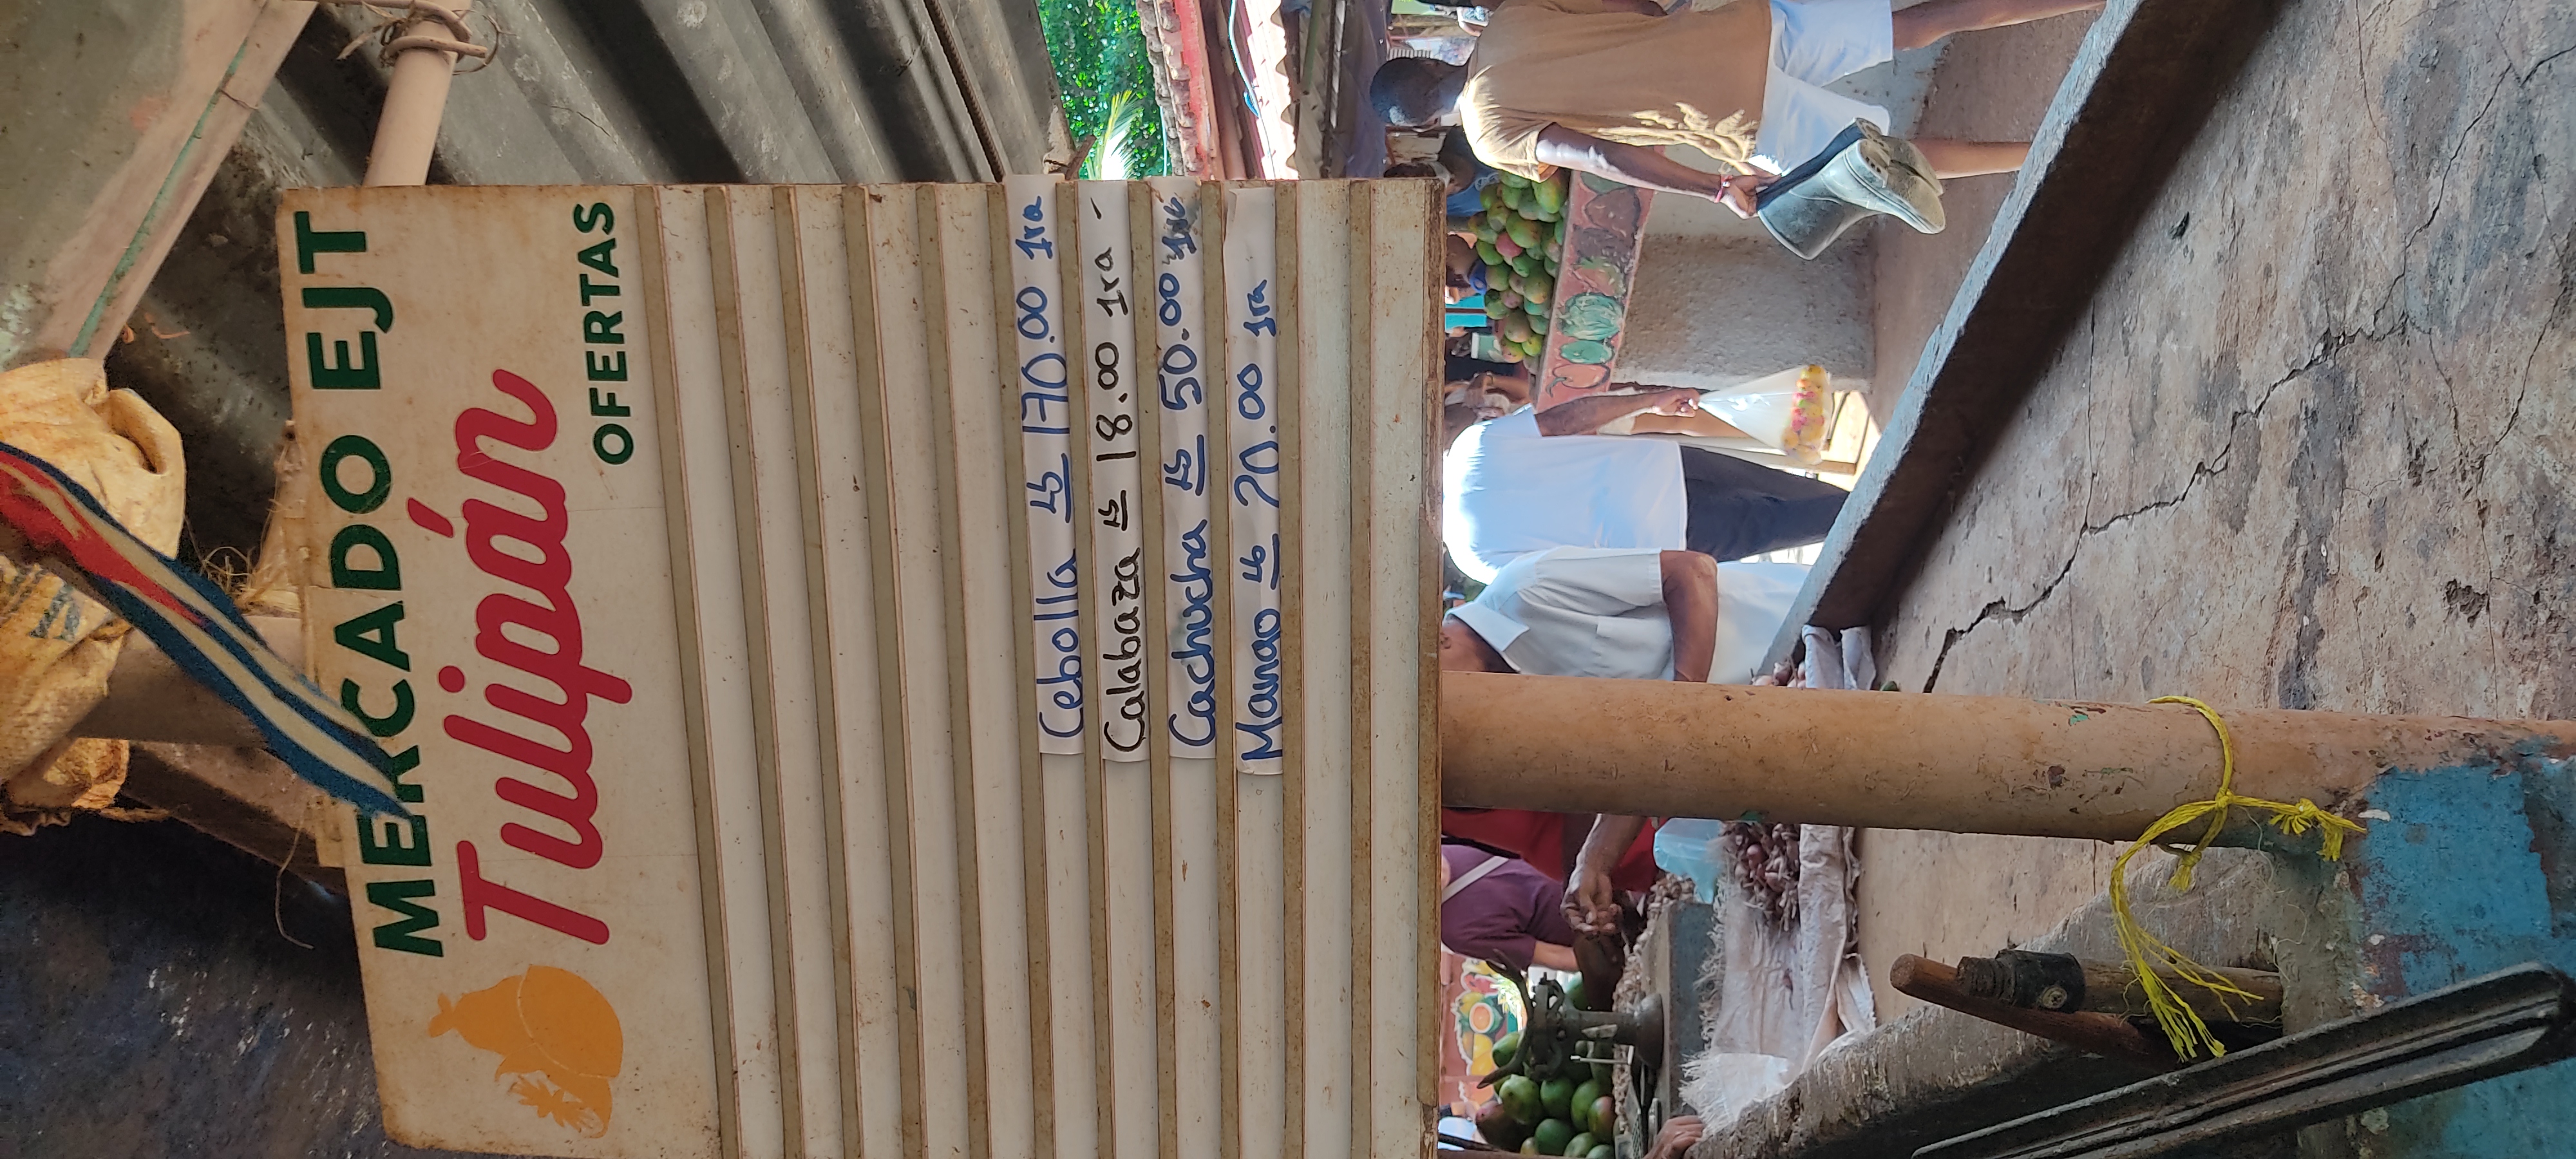 MERCADO EJT
Tulipán
OFERTAS
Cebolla lb 170.00 1ra
Calabaza lb 18.00 1ra -
Cachucha lb 50.00 1ra
Mango lb 20.00 1ra